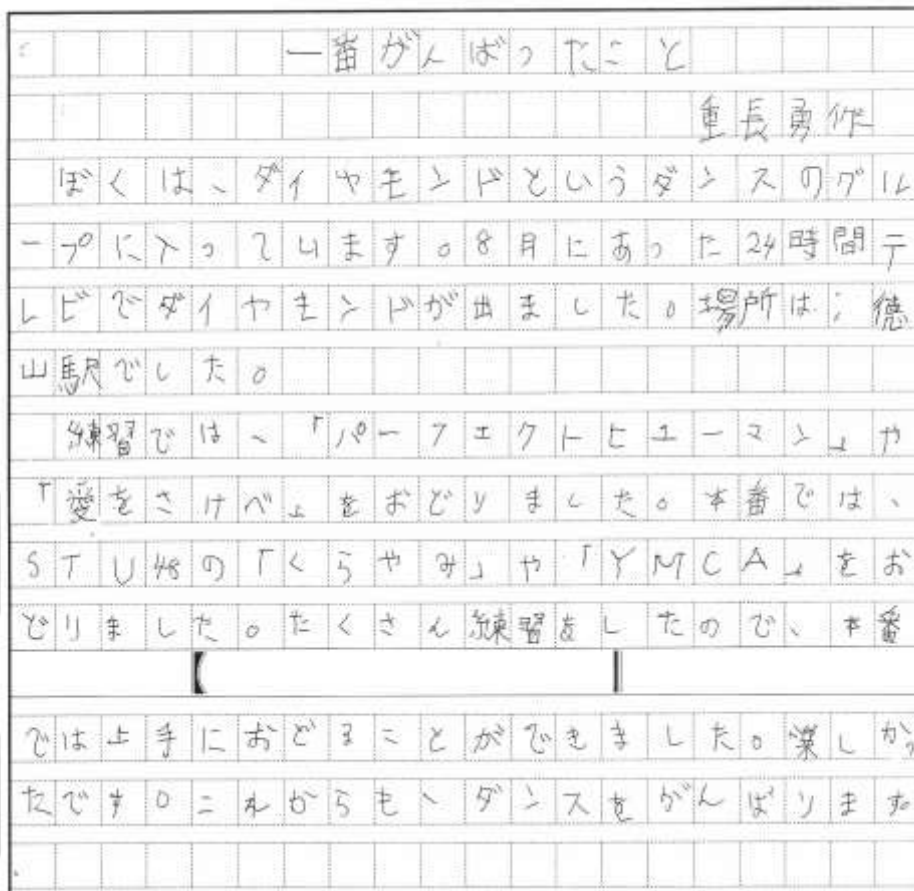 一番がんばったこと
重長勇作
ぼくは、ダイヤモンドというダンスのグル
ープに入っています。8月にあった24時間テ
レビでダイヤモンドが出ました。場所は、徳
山駅でした。
練習では、「パーフェクトヒューマン」や
「愛をさけべ」をおどりました。本番では、
STU48の「くらやみ」や「YMCA」をお
どりました。たくさん練習をしたので、本番
では上手におどることができました。楽しかっ
たです。これからも、ダンスをがんばります。